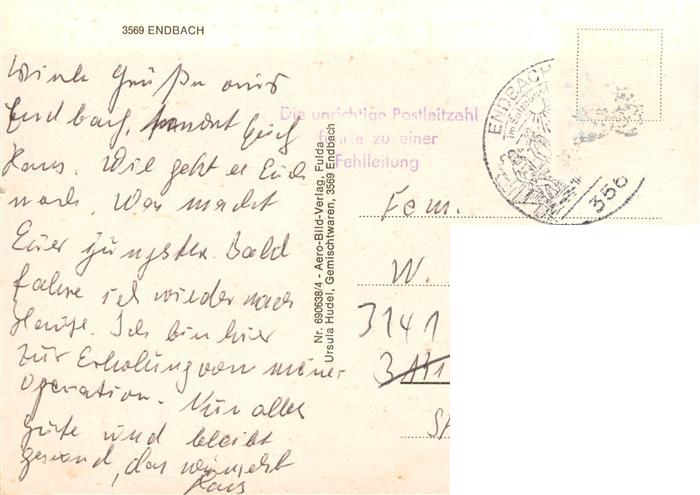 3569 ENDBACH
Viele Grüße aus
Endbach, sendet Euch
Hans. Wie geht es Euch
noch. Was macht
Euer jüngster. Bald
fahre ich wieder nach
Hause. Ich bin hier
zur Erholung von meiner
Operation. Nun alles
gute und bleibt
gesund, das wünscht
Hans
Die unrichtige Postleitzahl
führte zu einer
Fehlleitung
Nr. 690638/4 - Aero-Bild-Verlag, Fulda
Ursula Hudel, Gemischtwaren, 3569 Endbach
ENDBACH
356
Fam.
W.
3141